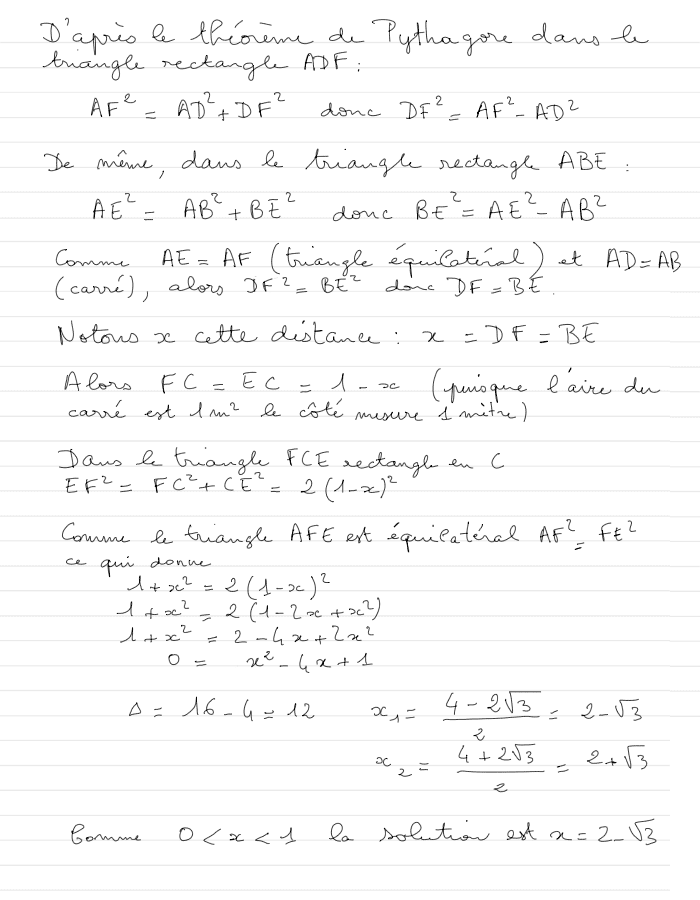 D'après le théorème de Pythagore dans le
triangle rectangle ADF :
AF² = AD² + DF² donc DF² = AF² - AD²
De même, dans le triangle rectangle ABE :
AE² = AB² + BE² donc BE² = AE² - AB²
Comme AE = AF (triangle équilatéral) et AD = AB
(carré), alors DF² = BE² donc DF = BE.
Notons x cette distance : x = DF = BE
Alors FC = EC = 1 - x (puisque l'aire du
carré est 1 m² le côté mesure 1 mètre)
Dans le triangle FCE rectangle en C
EF² = FC² + CE² = 2(1-x)²
Comme le triangle AFE est équilatéral AF² = FE²
ce qui donne
1 + x² = 2(1-x)²
1 + x² = 2(1 - 2x + x²)
1 + x² = 2 - 4x + 2x²
0 = x² - 4x + 1
Δ = 16 - 4 = 12 x₁ = (4 - 2√3)/2 = 2 - √3
x₂ = (4 + 2√3)/2 = 2 + √3
Comme 0 < x < 1 la solution est x = 2 - √3